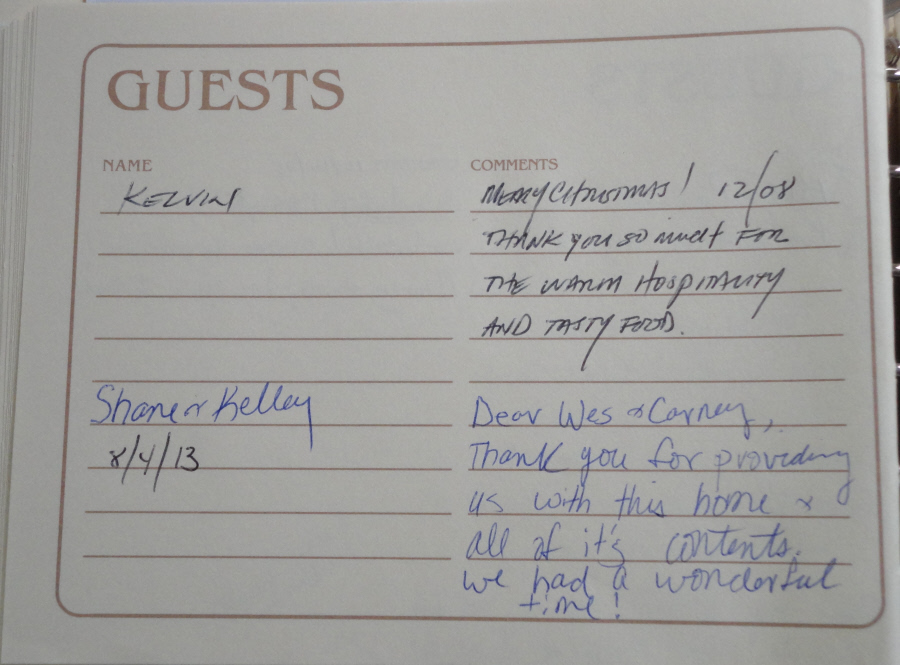 GUESTS
NAME
COMMENTS
KELVIN
MERRY CHRISTMAS! 12/08
THANK you so much FOR
THE WARM HOSPITALITY
AND TASTY FOOD.
Shane & Kelley
8/4/13
Dear Wes & Carney,
Thank you for providing
us with this home &
all of it's contents.
we had a wonderful
time!